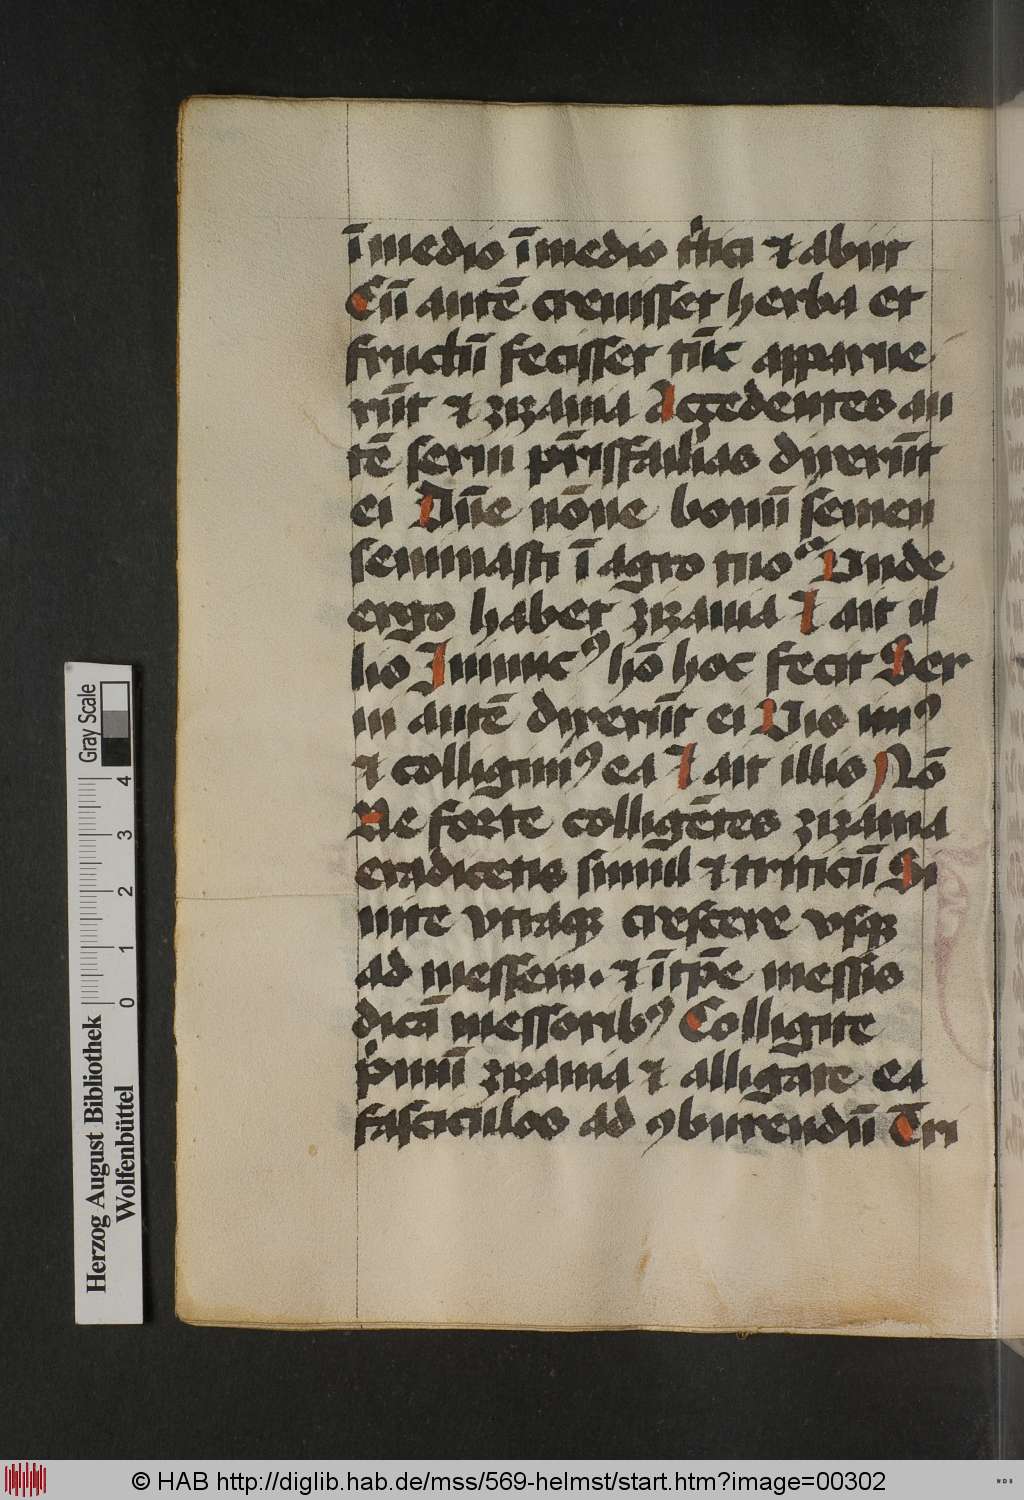 ī medio ī medio t̾tici ⁊ abiit
Cū autē creuisset herba et
fructū fecisset tūc apparue
rūt ⁊ zizania Accedentes au
tē serui pr̄isfamil̾ias dixerūt
ei Dn̄e nōne bonū semen
seminasti ī agro tuo Vnde
ergo habet zizania ⁊ ait il
lis Inimicꝰ hō hoc fecit Ser
ui autē dixerūt ei Vis imꝰ
⁊ colligimꝰ ea ⁊ ait illis Nō
Ne forte colligētes zizania
eradicetis simul ⁊ triticū Si
nite vtraqꝫ crescere vsqꝫ
ad messem . ⁊ ī tp̄e messis
dicā messoribꝰ Colligite
p̾mū zizania ⁊ alligate ea
fasciculos ad ꝯburendū Tri
Herzog August Bibliothek
Wolfenbüttel
Gray Scale
0 1 2 3 4
© HAB http://diglib.hab.de/mss/569-helmst/start.htm?image=00302